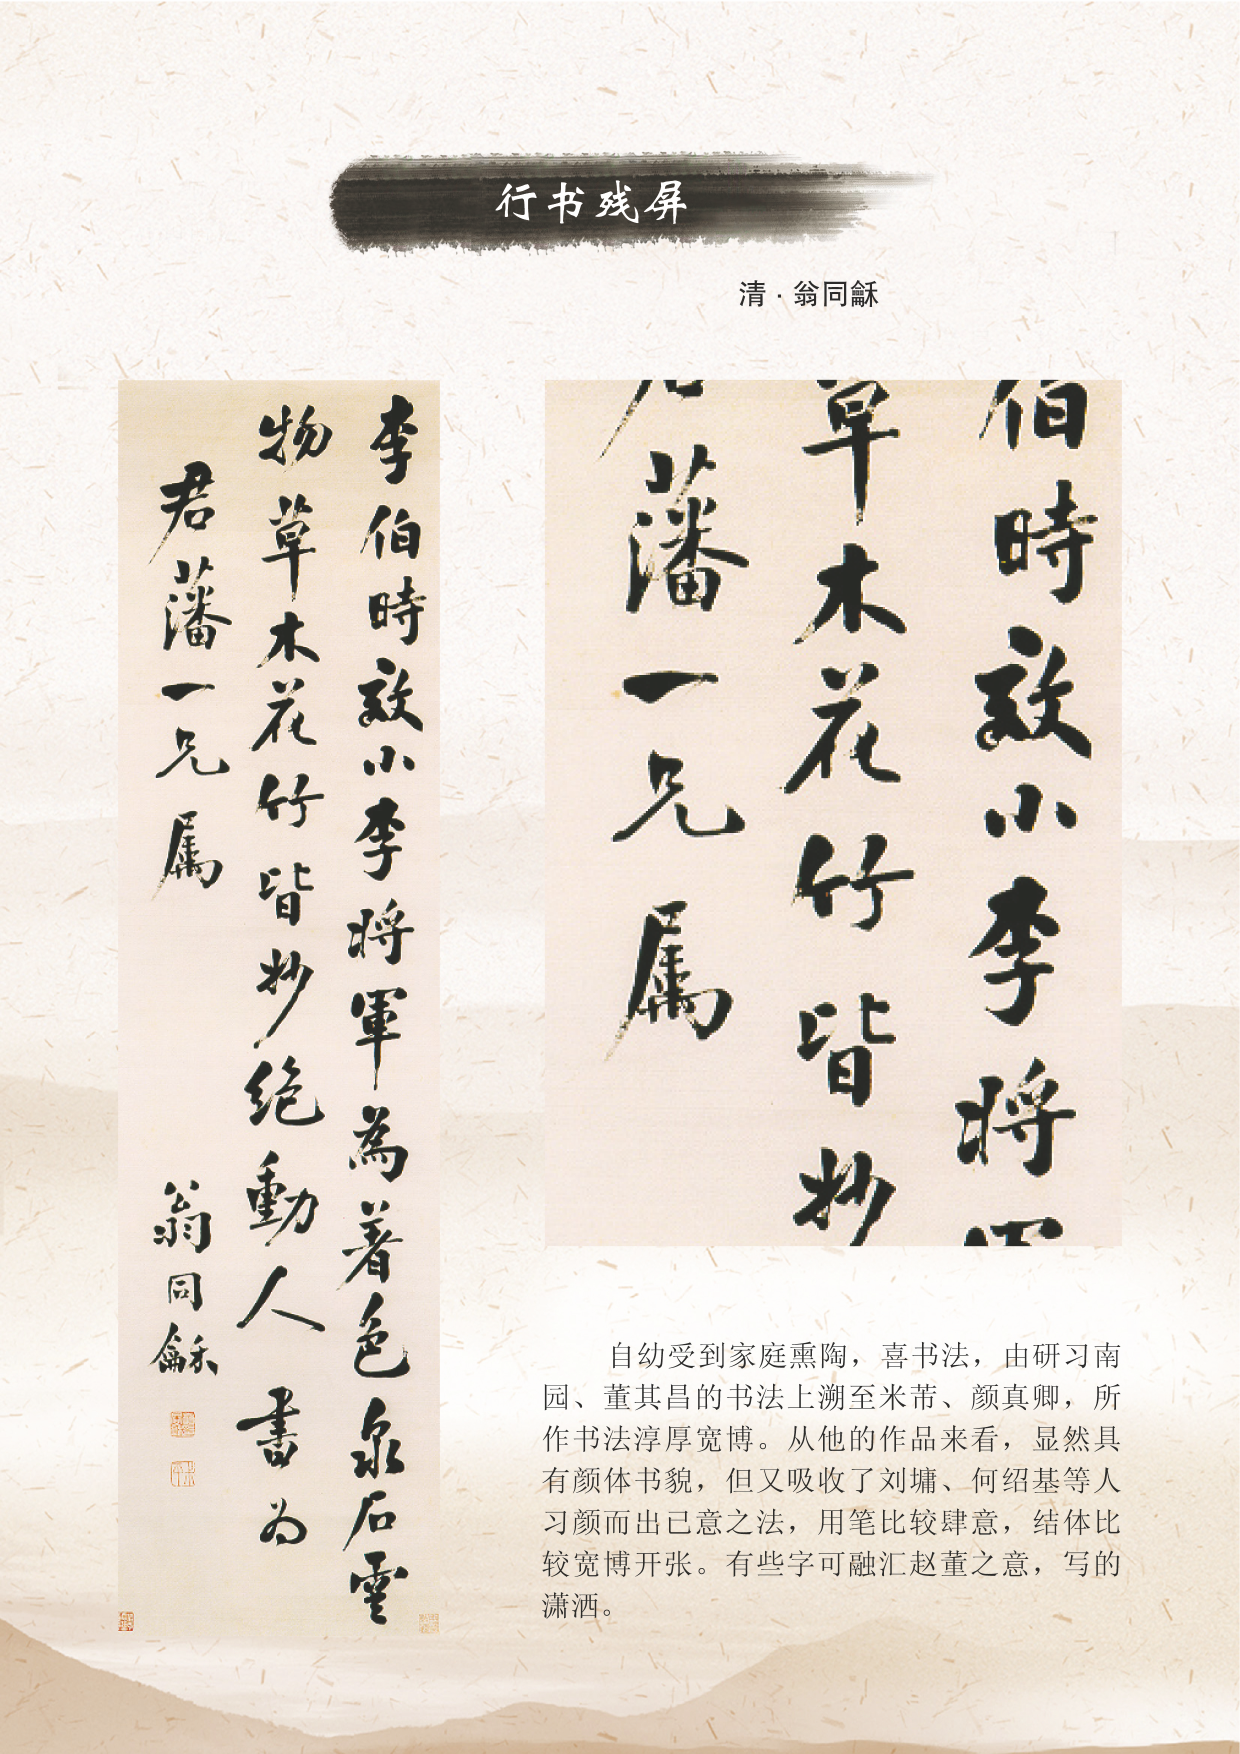 行书残屏
清·翁同龢
李伯時效小李將軍為著色泉石雲
物草木花竹皆妙絶動人 書為
君藩一兄属
翁同龢
伯時效小李將軍
草木花竹皆妙
君藩一兄属
自幼受到家庭熏陶，喜书法，由研习南
园、董其昌的书法上溯至米芾、颜真卿，所
作书法淳厚宽博。从他的作品来看，显然具
有颜体书貌，但又吸收了刘墉、何绍基等人
习颜而出已意之法，用笔比较肆意，结体比
较宽博开张。有些字可融汇赵董之意，写的
潇洒。